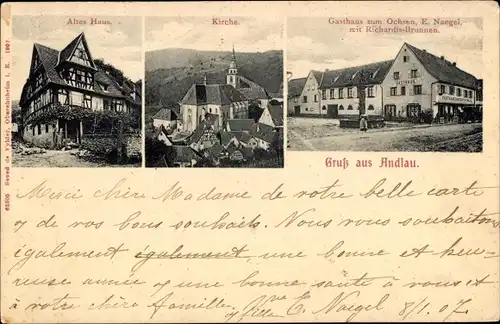 Altes Haus.
Kirche.
Gasthaus zum Ochsen, E. Naegel,
mit Richardis-Brunnen.
Gruß aus Andlau.
Merci chère Madame de votre belle carte
& de vos bons souhaits. Nous vous souhaitons
également également une bonne et heu-
reuse année & une bonne santé à vous et
à votre chère famille. E. Naegel 8/1. 07.
& fille